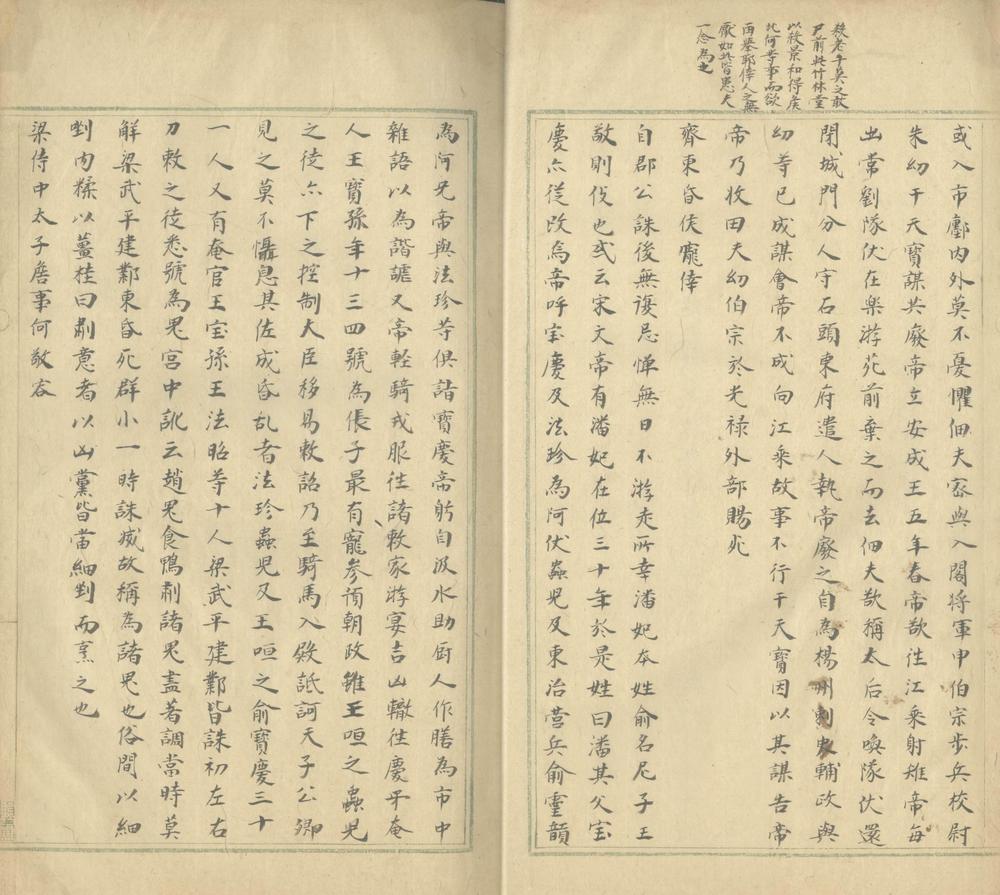 殺老千莫之敢
尸前此竹林堂
以殺景和得矣
此何等事而欲
再舉耶倖人之無
厭如此皆愚夫
一念為之
或入市廛內外莫不憂懼佃夫密與入閣將軍申伯宗步兵校尉
朱幼于天寶謀共廢帝立安成王五年春帝欲往江乘射雉帝每
出常劉隊伏在樂游苑前棄之而去佃夫欲稱太后令喚隊伏還
閉城門分人守石頭東府遣人執帝廢之自為楊州刺史輔政與
幼等已成謀會帝不成向江乘故事不行于天寶因以其謀告帝
帝乃收田夫幼伯宗於光祿外部賜死
齊東昏侯寵倖
自郡公誅後無復忌憚無日不游走所幸潘妃本姓俞名尼子王
敬則伎也或云宋文帝有潘妃在位三十年於是姓曰潘其父宝
慶亦從改焉帝呼宝慶及法珍為阿伏蟲児及東冶营兵俞靈韻
為阿兄帝與法珍等俱詣寶慶帝躬自汲水助厨人作膳為市中
雜語以為諧謔又帝輕騎戎服往諸敕家游宴吉凶轍往慶弔奄
人王寶孫年十三四號為倀子最有寵参預朝政雖王咺之蟲児
之徒亦下之控制大臣移易敕詔乃至騎馬入殿詆訶天子公卿
見之莫不懾息其佐成昏乱者法珍蟲児及王咺之俞寶慶三十
一人又有奄官王宝孫王法昭等十人梁武平建鄴皆誅初左右
刀敕之徒悉號為鬼宮中訛云趙鬼食鴨劀諸鬼盡著調當時莫
解梁武平建鄴東昏死群小一時誅滅故稱為諸鬼也俗間以細
剉肉糅以薑桂曰劀意者以凶黨皆當細剉而烹之也
梁侍中太子詹事何敬容